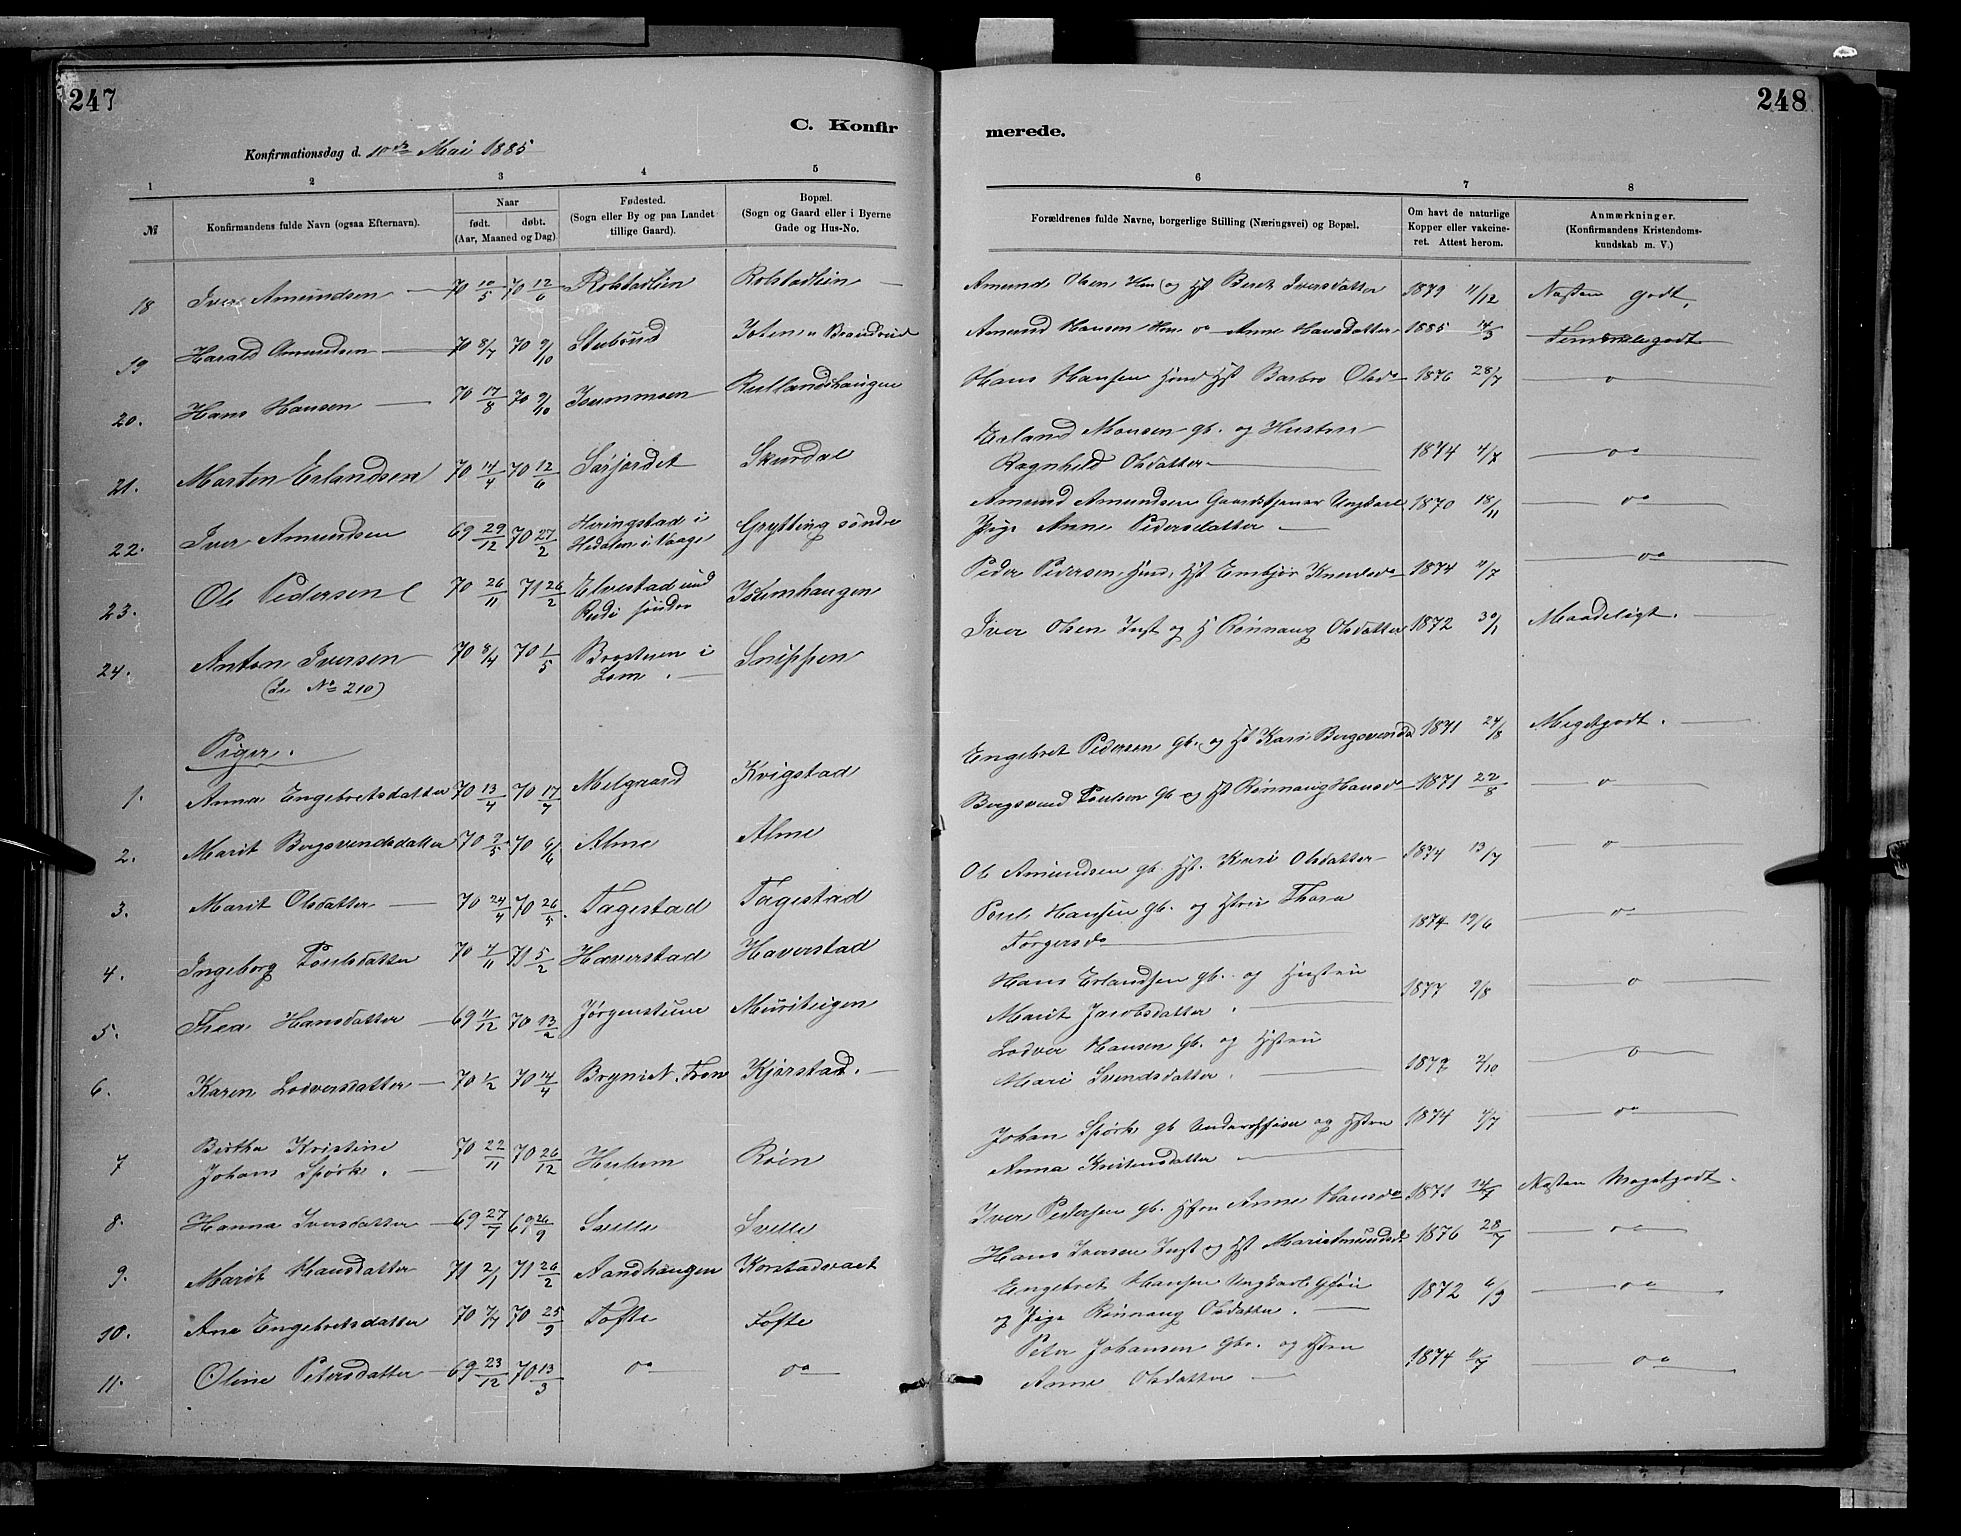 247
C. Konfir
Konfirmationsdag d. 10de Mai 1885
1 2 3 4 5
№ Konfirmandens fulde Navn (ogsaa Efternavn). Naar født. døbt. (Aar, Maaned og Dag) Fødested. (Sogn eller By og paa Landet tillige Gaard). Bopæl. (Sogn og Gaard eller i Byerne Gade og Hus-No.
18 Iver Amundsen 70 10/5 70 12/6 Rolstadlien Rolstadlien
19 Harald Amundsen 70 8/7 70 9/10 Stebrud
20. Hans Hansen 70 17/8 70 9/10
21. Marten Erlandsen 70 14/4 70 12/6 Sørjordet Skurdal
22. Iver Amundsen 69 29/12 70 27/2 Heringstad i Grytting søndre
Hedalen i Vaage
23. Ole Pedersen 70 26/11 71 26/2 Elvestad und
søndre
24. Anton Iversen 70 8/4 70 1/5 i Snippen
(Se No 210) Lom.
Piger.
1. Anna Engebretsdatter 70 13/4 70 17/7 Melgaard Kvigstad
2. Marit Bergsvendsdatter 70 70 6/6 Alme Alme
3. Marit Olsdatter 70 24/4 70 26/5 Fagestad Fagestad
4. Ingeborg Poulsdatter 70 71 5/2 Haverstad Haverstad
5. Thea Hansdatter 69 11/12 70 13/2 Jørgenstuen Muriteigen
6. Karen Lodversdatter 70 1/2 70 14/4 Fron Kjørstad.
7 Birthe Kristine 70 22/11 70 26/12 Røen
Johans Spörk.
8. Hanna Iversdatter 69 27/7 69 26/9 Svelle Svelle
9. Marit Hansdatter 71 2/1 71 26/2 Sandhaugen Korstadsvaet
10. Ane Engebretsdatter 70 7/7 70 25/9 Tofte Tofte
11. Oline Petersdatter 69 23/12 70 13/3 do do
248
merede.
6 7 8
Forældrenes fulde Navne, borgerlige Stilling (Næringsvei) og Bopæl. Om havt de naturlige Kopper eller vakcineret. Attest herom. Anmærkninger. (Konfirmandens Kristendomskundskab m. V.)
Amund Olsen Hm og Hst Berit Iversdatter 1879 11/12 Næsten godt.
Amund Hansen Hm. og Anne Hansdatter 1885 14/3 Temmeligodt
Hans Hansen Hmd Hst Barbro Olsdr 1876 28/7 do
Erland Monsen gb. og Hustru
Ragnhild Olsdatter 1874 4/7 do
Amund Amundsen Gaardstjener Ungkarl 1870 18/11 do
Pige Anne Pedersdatter
Peder Pedersen, Hmd, Hst Embjør 1874 11/7 do
Iver Olsen Inst og H Rønnaug Olsdatter 1872 30/1 Maadeligt.
Engebret Pedersen gb. og Hst Kari Bergsvendsd 1871 24/8 Megetgodt.
Bergsvend Poulsen gb og Hst Rønnaug Hansd 1871 22/8 do
Ole Amundsen gb. Hst. Kari Olsdatter 1874 13/7 do
Poul Hansen gb. og Hstru Thora
Torgersdr 1874 19/6 do
Hans Erlandsen gb. og Hustru
Marit Jacobsdatter. 1877 9/8 do
Lodver Hansen gb. og Hstru
Mari Svendsdatter. 1879 2/10 do
Johan Spörk gb Underofficier og Hstru 1874 4/7 do
Anna Kristensdatter
Iver Pedersen gb. Hstru Anne Hansdr 1871 14/9 Næsten Megetgodt.
Hans Iversen Inst og Hst Mari Amundsd 1876 28/7 do
Engebret Hansen Ungkarl
og Pige Rønnaug Olsdatter. 1872 6/9 do
Peter Johansen gbr. og Hstru
Anne Olsdatter 1874 11/7 do